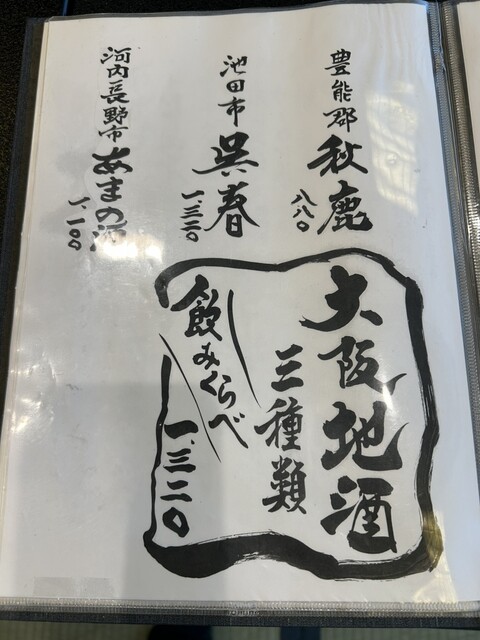 豊能郡 秋鹿
八八〇
池田市 呉春
一、三二〇
河内長野市 あまの酒
一、一〇〇
大阪地酒
三種類
飲みくらべ
一、三二〇